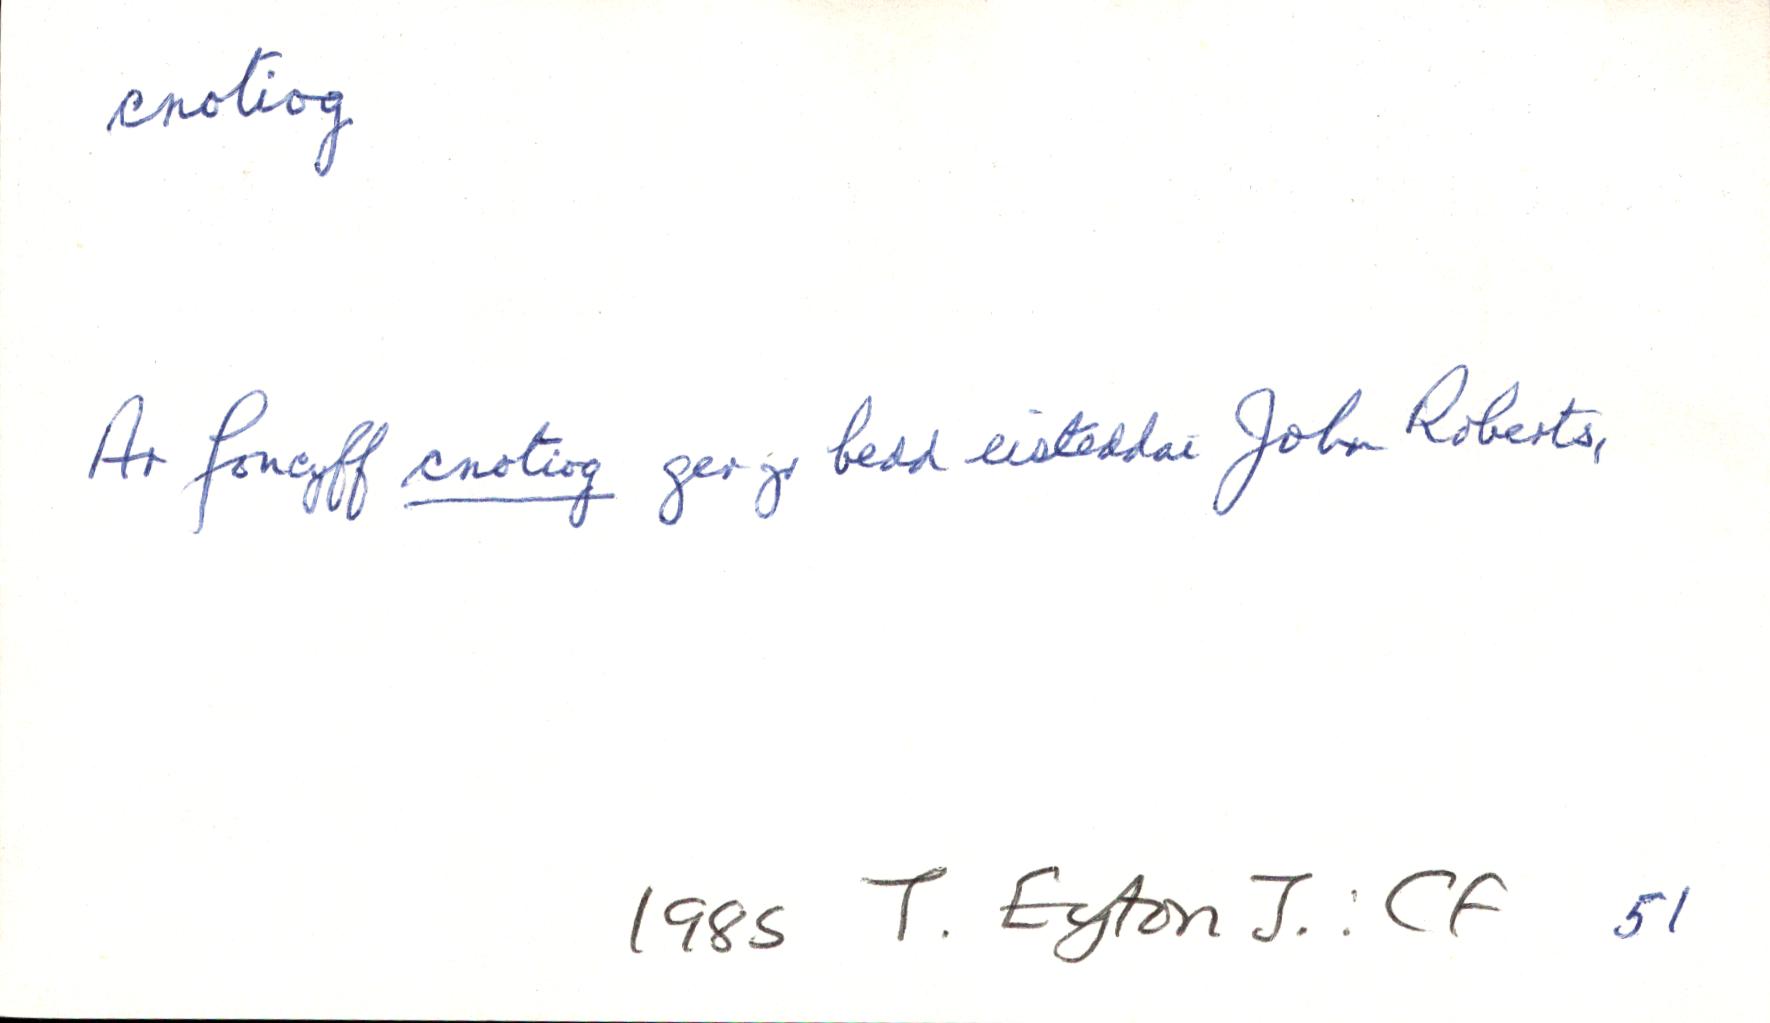 cnotiog
Ar foncyff cnotiog ger yr bedd eisteddai John Roberts,
1985 T. Eyton J.: CF 51